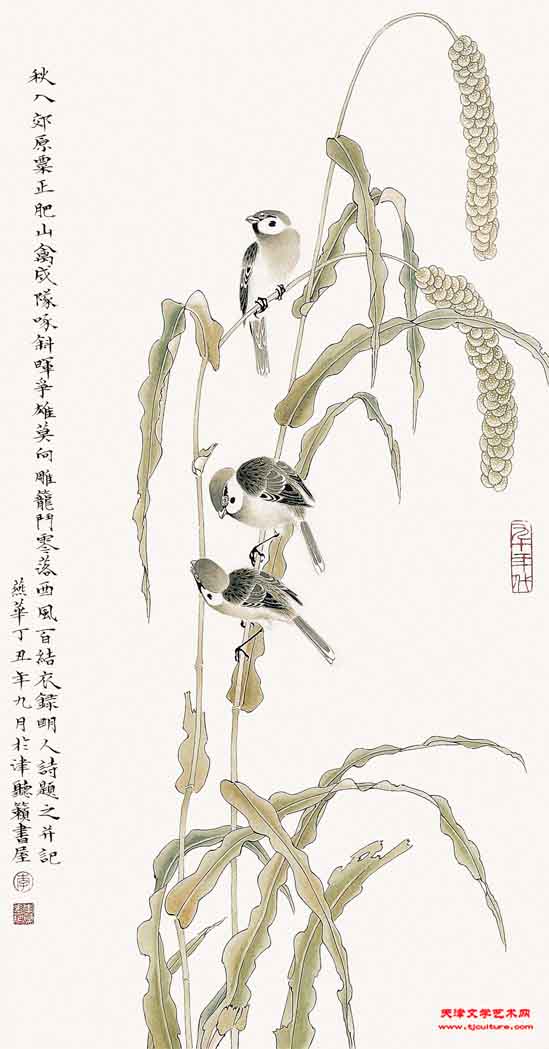 秋入郊原粟正肥山禽成隊啄斜暉爭雄莫向雕籠鬥零落西風百結衣錄明人詩題之并記
燕華丁丑年九月於津聽籟書屋
天津文学艺术网
www.tjculture.com